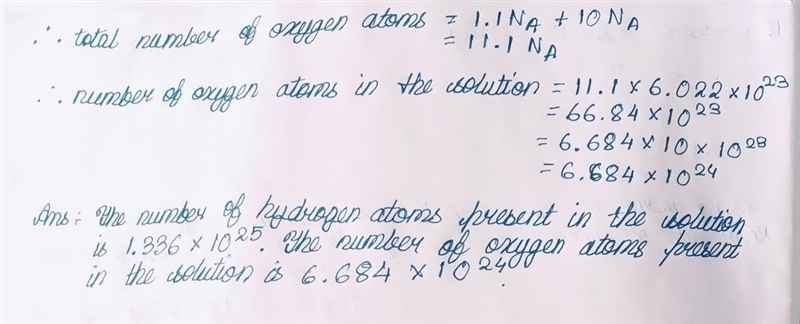 ∴ total number of oxygen atoms = 1.1 NA + 10 NA
= 11.1 NA
∴ number of oxygen atoms in the solution = 11.1 × 6.022 × 10²³
= 66.84 × 10²³
= 6.684 × 10 × 10²³
= 6.684 × 10²⁴
Ans :- The number of hydrogen atoms present in the solution
is 1.336 × 10²⁵. The number of oxygen atoms present
in the solution is 6.684 × 10²⁴.